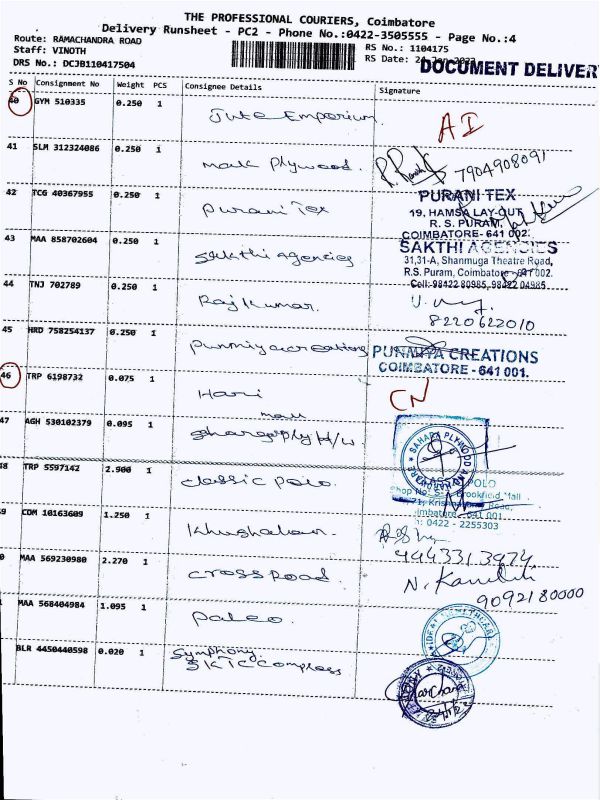 THE PROFESSIONAL COURIERS, Coimbatore
Delivery Runsheet - PC2 - Phone No.:0422-3505555 - Page No.:4
Route: RAMACHANDRA ROAD
Staff: VINOTH
DRS No.: DCJB110417504
RS No.: 1104175
RS Date: 24
DOCUMENT DELIVER
S No Consignment No Weight PCS Consignee Details Signature
40 GYM 510335 0.250 1 Jute Emporium AI
41 SLM 312324086 0.250 1 mark Plywood. 7904908091
42 TCG 40367955 0.250 1 Purani Tex
PURANI TEX
19, HAMSA LAY-OUT
R. S. PURAM,
COIMBATORE - 641 002.
43 MAA 858702604 0.250 1 Sakthi agencies
SAKTHI AGENCIES
31,31-A, Shanmuga Theatre Road,
R.S. Puram, Coimbatore - 641 002.
Cell: 98422 80985, 98422 04985
44 TNJ 702789 0.250 1 Rajkumar.
8220622010
45 HRD 758254137 0.250 1 Punmiya creations
PUNMIYA CREATIONS
COIMBATORE - 641 001.
46 TRP 6198732 0.075 1 Hari CN
47 AGH 530102379 0.095 1 H/w.
48 TRP 5597142 2.900 1 classic polo.
POLO
Brookfield Mall
Road,
641 001
0422 - 2255303
9 CDM 10163609 1.250 1
9443313974
0 MAA 569230980 2.270 1 Crossroad.
9092180000
MAA 568404984 1.095 1
BLR 4450440598 0.020 1 Symphony